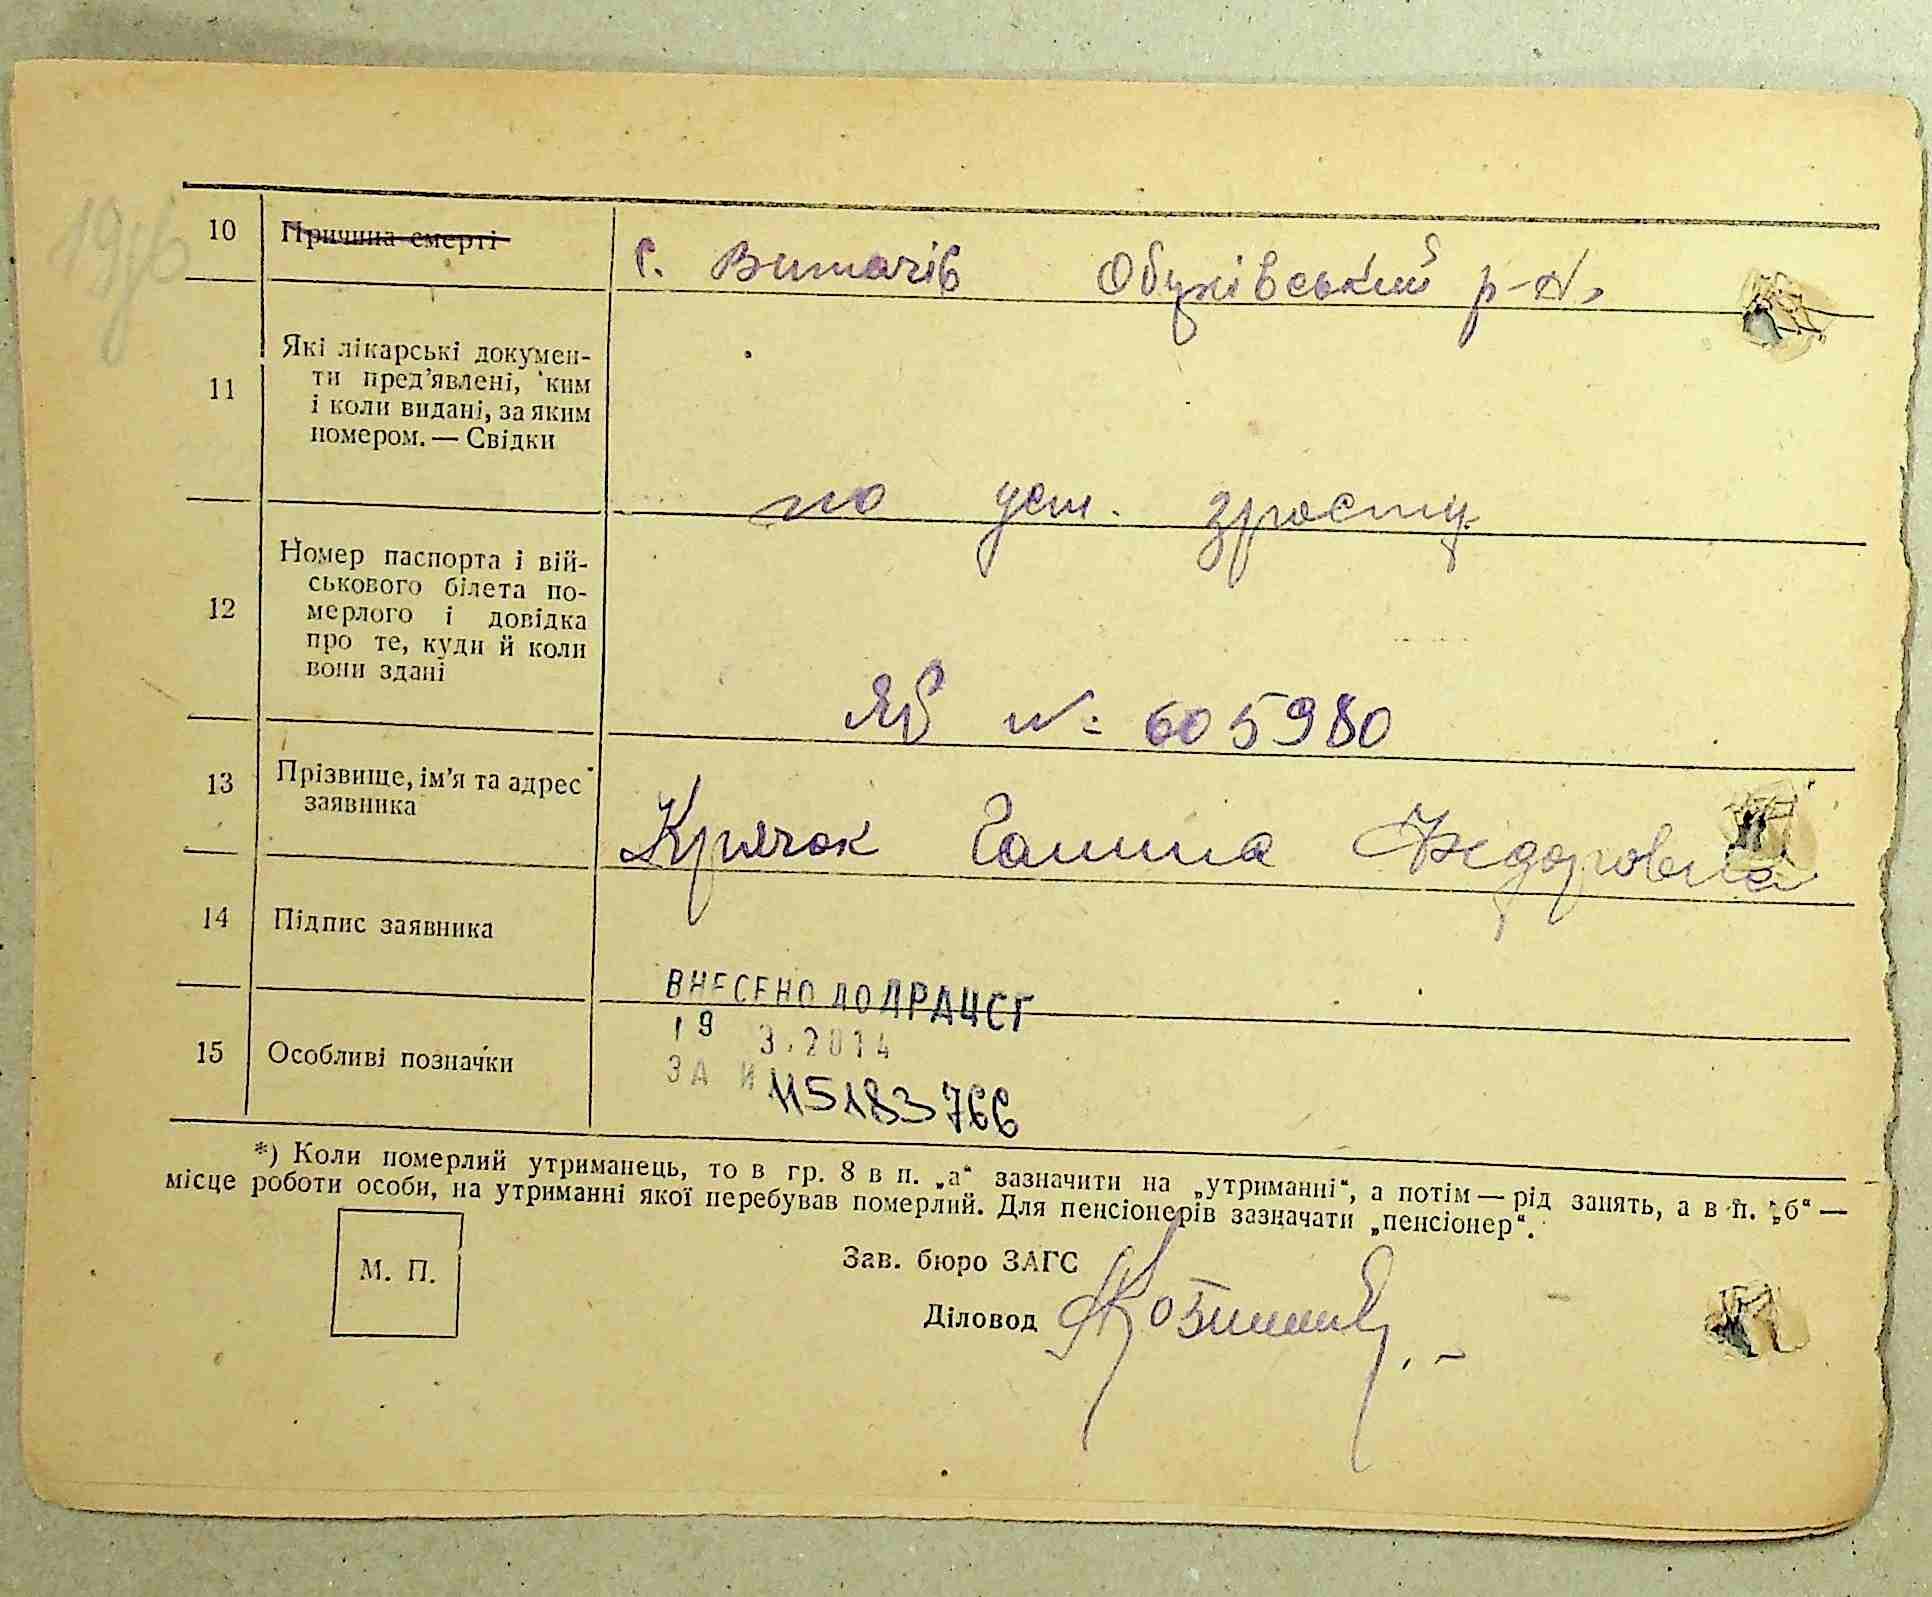 10 Причина смерті с. Витачів Обухівський р-н,
11 Які лікарські докумен-
ти пред’явлені, ким
і коли видані, за яким
номером. — Свідки
по уст. зросту
12 Номер паспорта і вій-
ськового білета по-
мерлого і довідка
про те, куди й коли
вони здані
ЯБ №: 605980
13 Прізвище, ім’я та адрес
заявника
Крячок Галина Федоровна
14 Підпис заявника
ВНЕСЕНО ДО ДРАЦСГ
19 3.2014
15 Особливі позначки
ЗА № 115183766
*) Коли померлий утриманець, то в гр. 8 в п. „а“ зазначити на „утриманні“, а потім — рід занять, а в п. „б“ —
місце роботи особи, на утриманні якої перебував померлий. Для пенсіонерів зазначати „пенсіонер“.
М. П.
Зав. бюро ЗАГС
Діловод